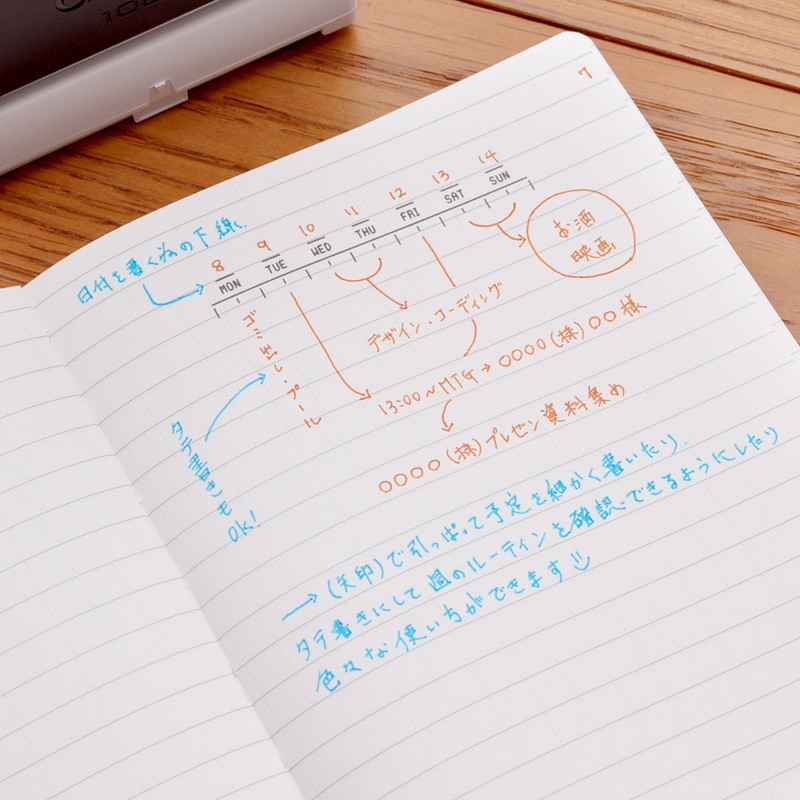 100
7
8 9 10 11 12 13 14
MON TUE WED THU FRI SAT SUN
日付を書く為の下線。
お酒
映画
デザイン、コーディング
ゴミ出し・プール
13:00~MTG→○○○○(株)○○様
○○○○(株)プレゼン資料集め
タテ書きも
OK!
→(矢印)で引っぱって予定を細かく書いたり、
タテ書きにして週のルーティンを確認できるようにしたり
色々な使い方ができます